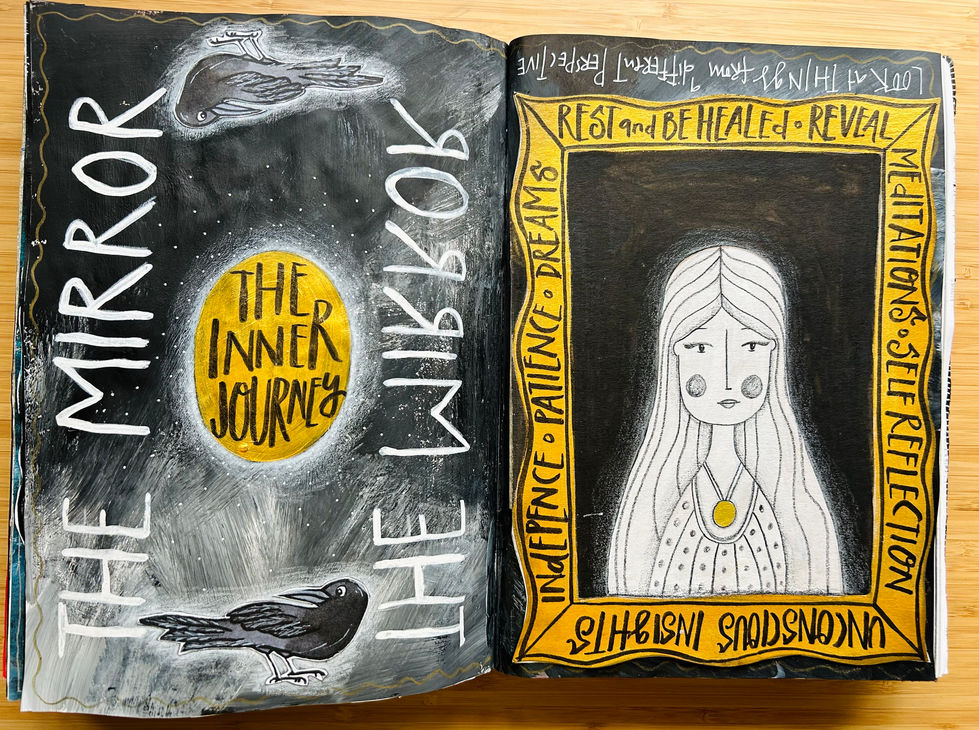 THE MIRROR
THE
INNER
JOURNEY
THE MIRROR
LOOK AT THINGS from a diffERENT PERSPECTIVE
REST and BE HEALEd • REVEAL
MEdITATIONS • SELF REFLECTION
UNCONSCIOUS INSIGHTS
INdEPENCE • PATIENCE • DREAMS